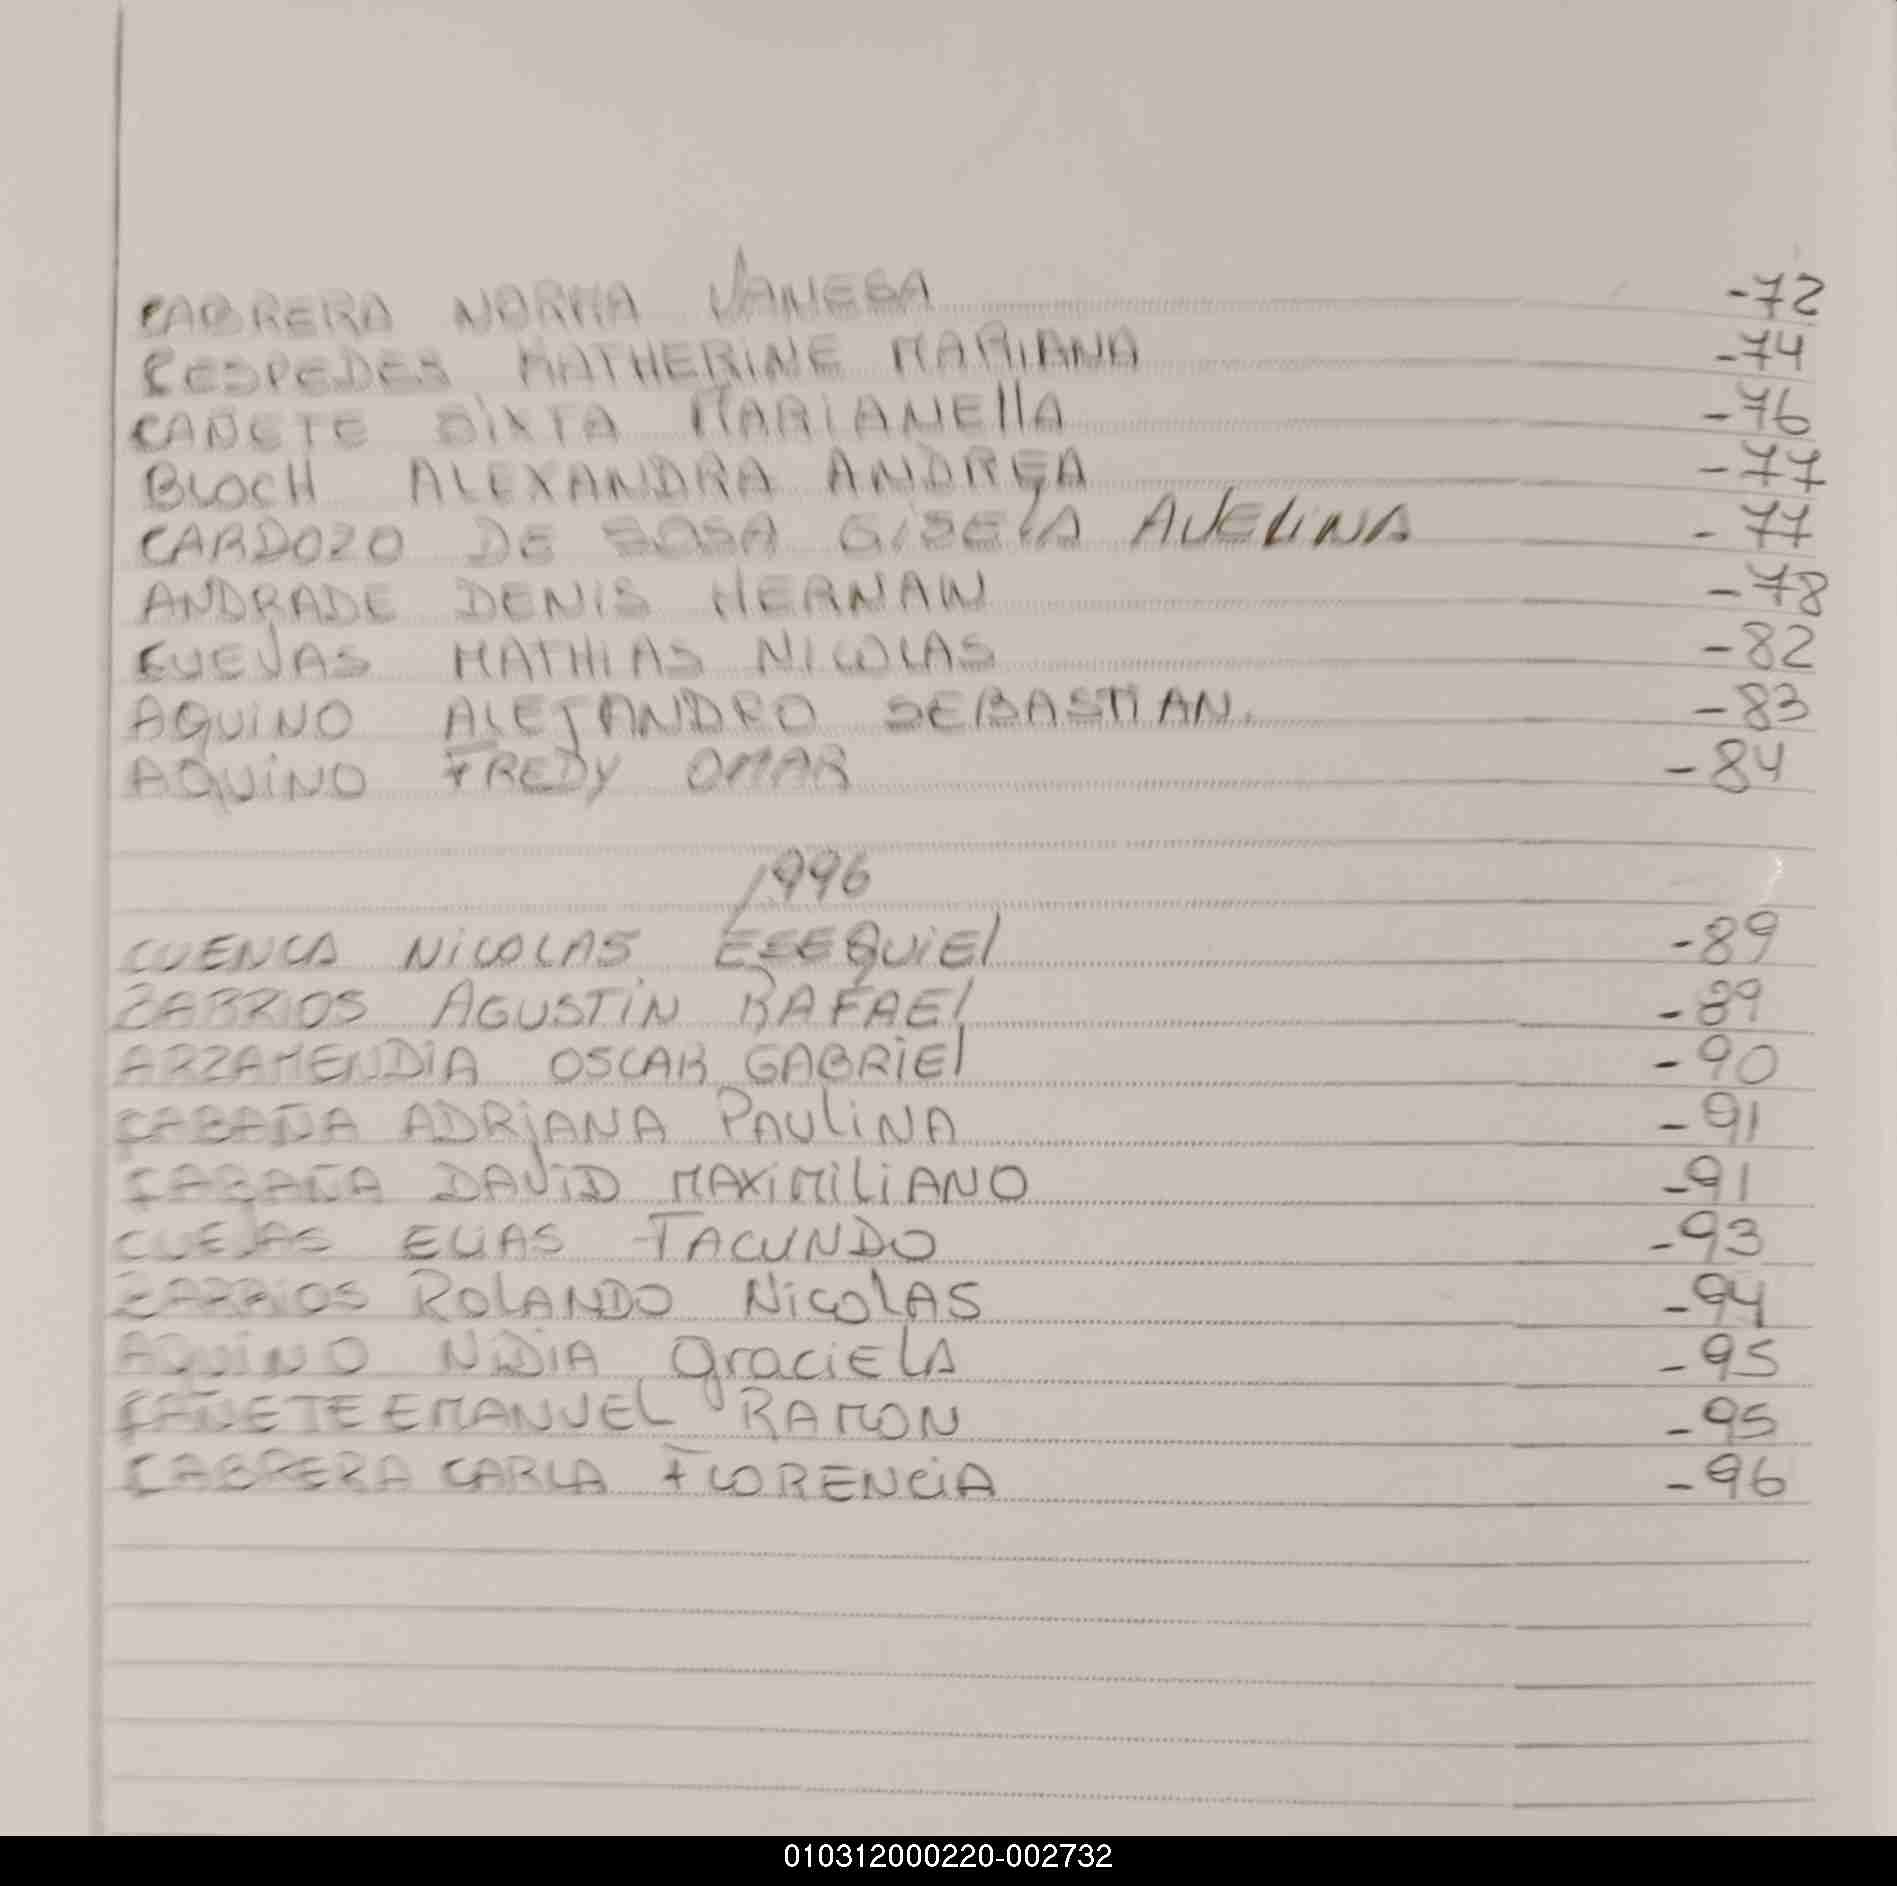 CABRERA NORMA VANESA -72
CESPEDES KATHERINE MARIANA -74
CAÑETE SIXTA MARIANElla -76
BLOCH ALEXANDRA ANDREA -77
CARDOZO DE SOSA GISElA AVELINA -77
ANDRADE DENIS HERNAN -78
CUEVAS MATHIAS NICOLAS -82
AQUINO ALEJANDRO SEBASTIAN. -83
AQUINO FREDY OMAR -84
1996
CUENCA NICOLAS ESEQUIEl -89
BARRIOS AGUSTIN RAFAEl -89
ARZAMENDIA OSCAR GABRIEl -90
CABAÑA ADRIANA PAULINA -91
CABAÑA DAVID MAXIMILIANO -91
CUEVAS ELIAS FACUNDO -93
BARRIOS ROLANDO NICOLAS -94
AQUINO NIDIA GraciELA -95
CAÑETE EMANUEL RAMON -95
CABRERA CARLA FLORENCIA -96
010312000220-002732